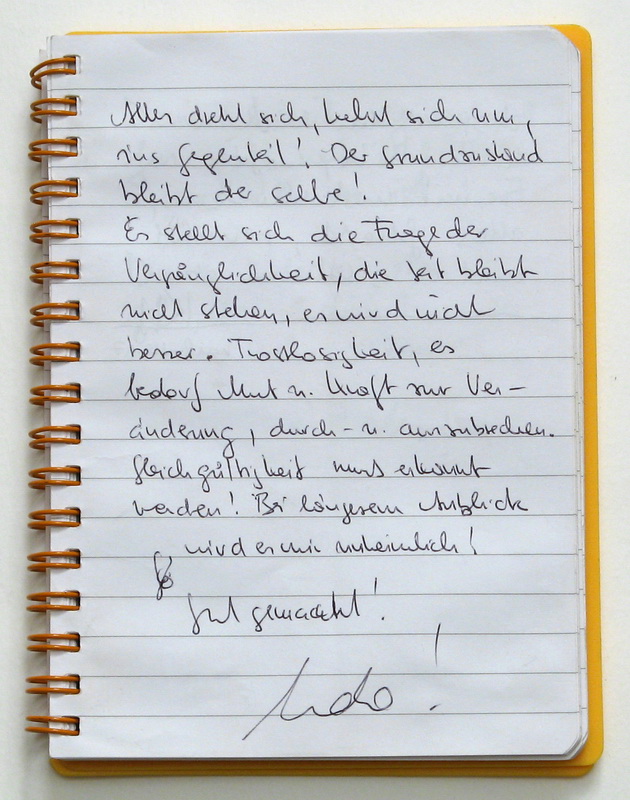 Alles dreht sich, kehrt sich um,
ins Gegenteil! Der Grundzustand
bleibt der selbe!
Es stellt sich die Frage der
Vergänglichkeit, die Zeit bleibt
nicht stehen, es wird nicht
besser. Trostlosigkeit, es
bedarf Mut u. Kraft zur Ver-
änderung, durch- u. auszubrechen.
Gleichgültigkeit muss erkannt
werden! Bei längerem Anblick
wird es mir unheimlich!
Gut gemacht!
Udo!